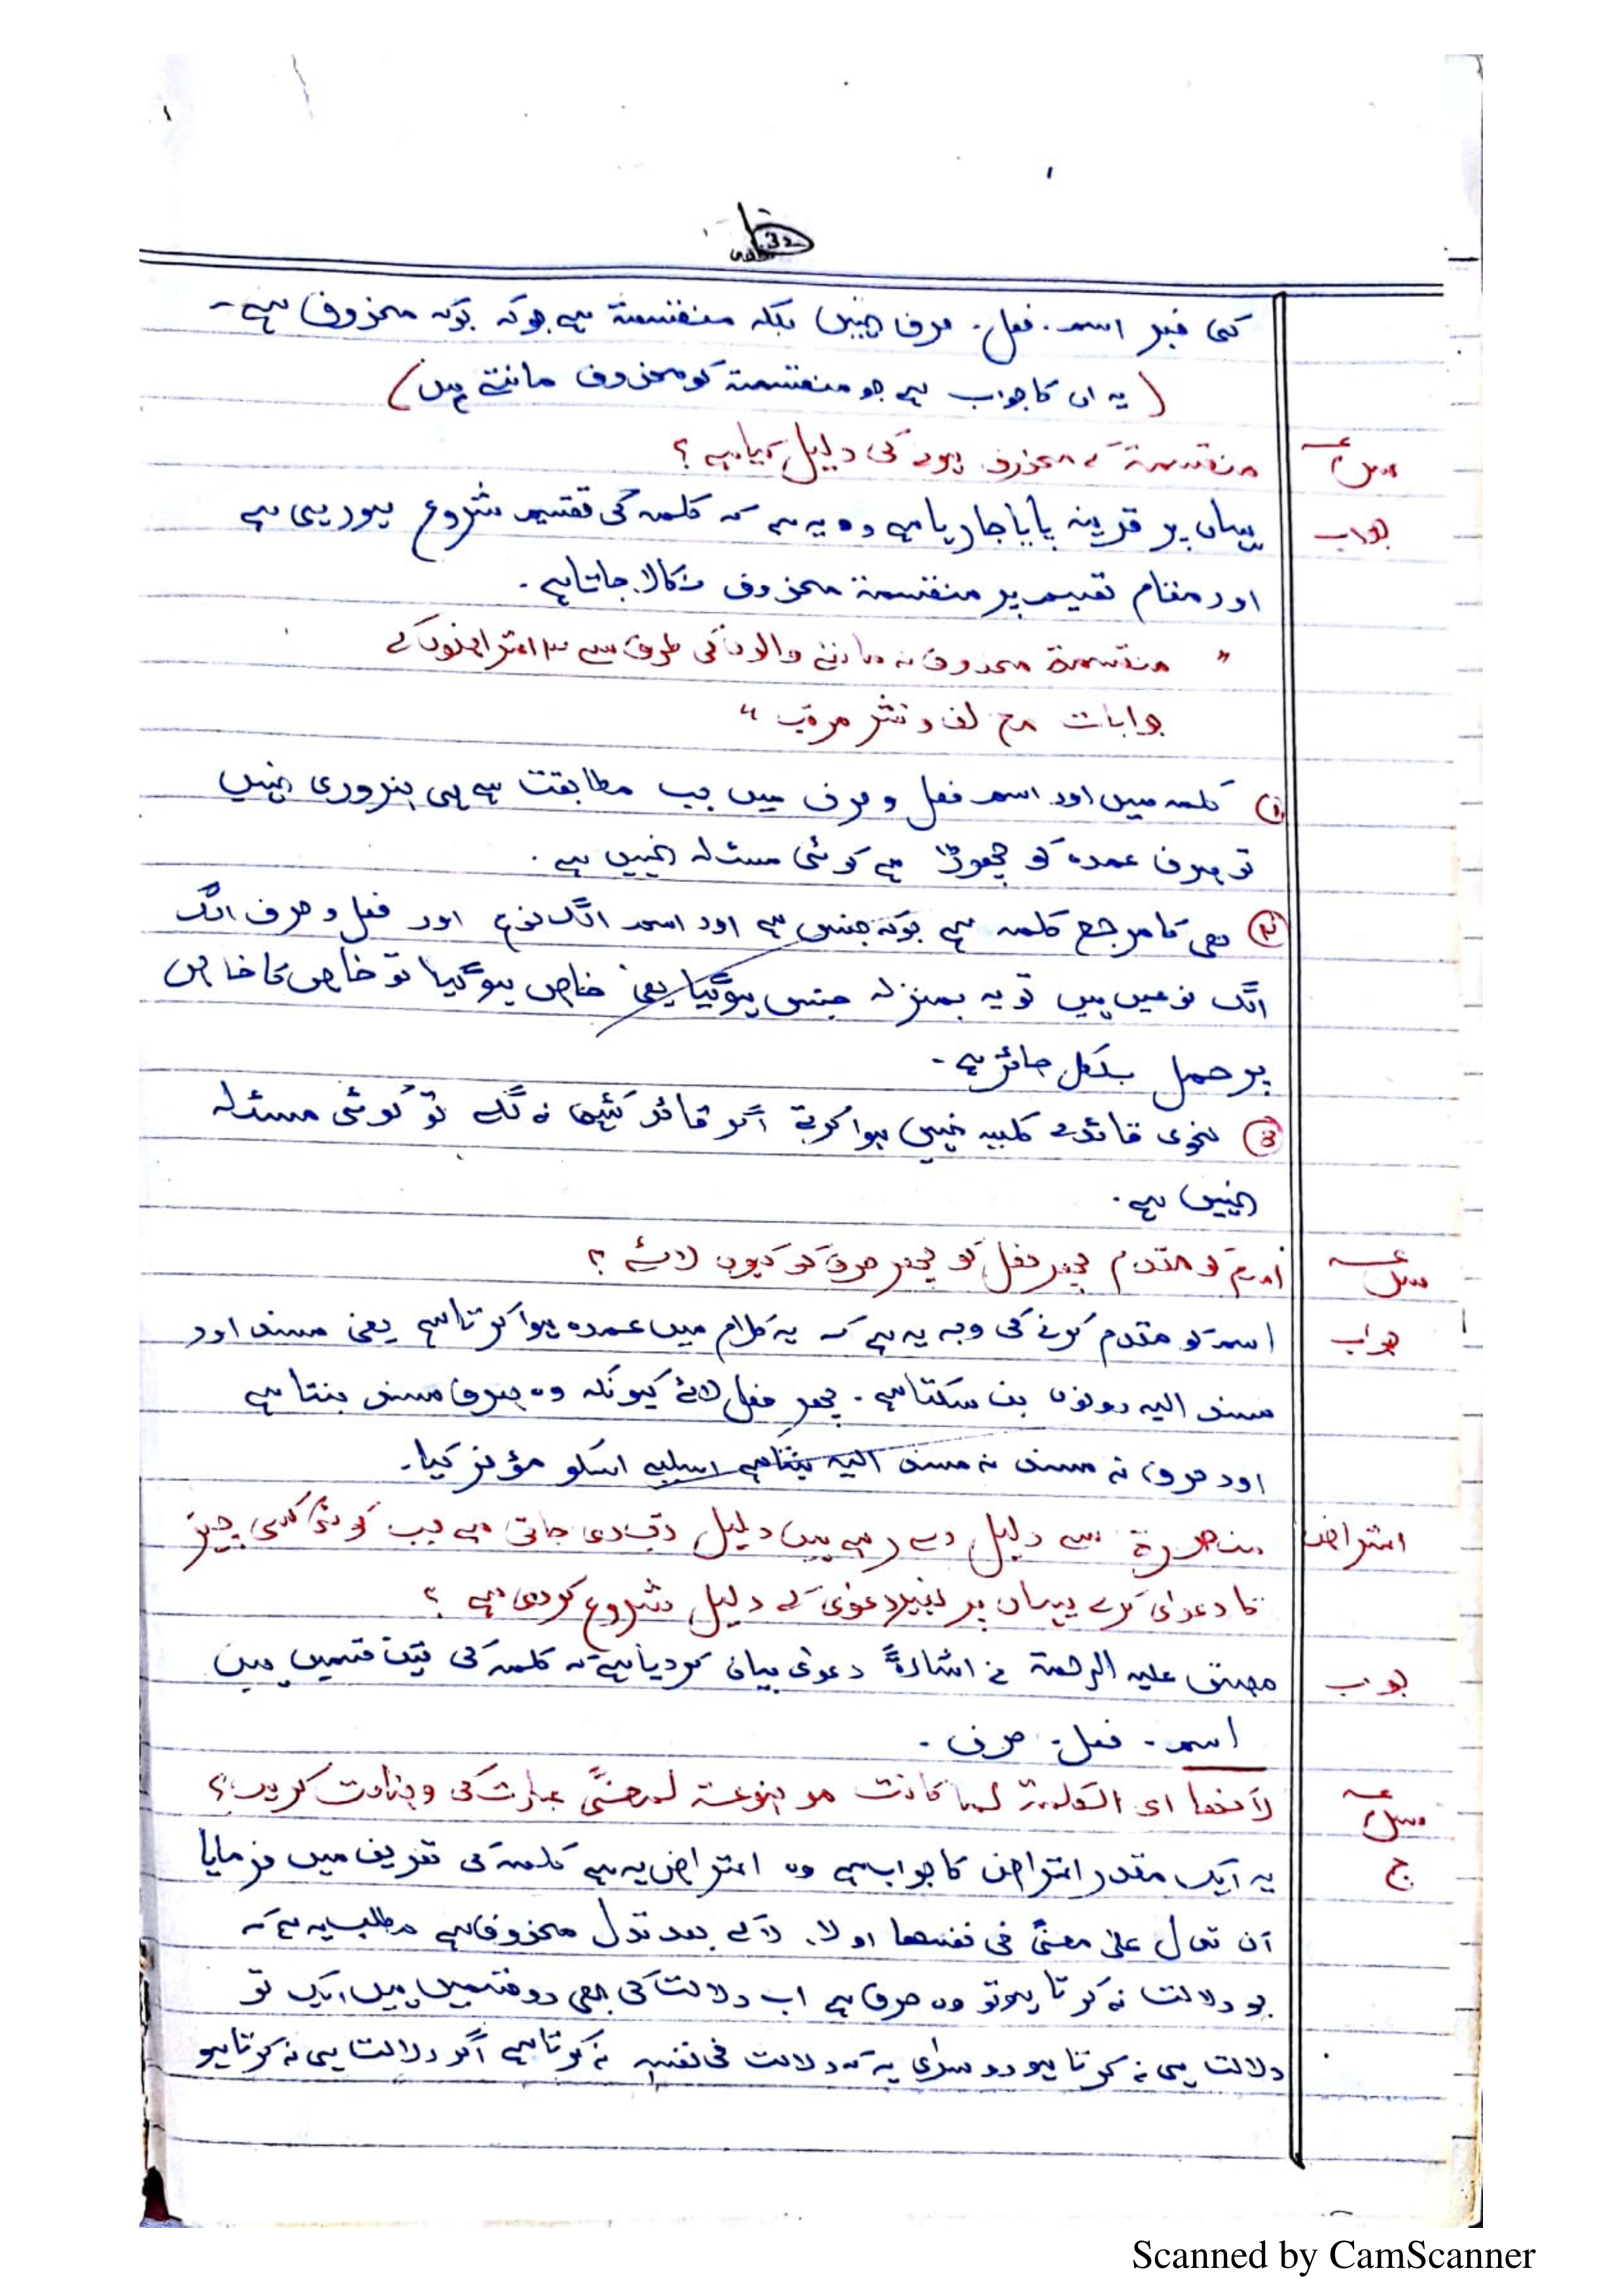 کی خبر اسم۔ فعل۔ حرف نہیں بلکہ منقسمۃ ہے جو کہ محذوف ہے۔
(یہ ان کا جواب ہے جو منقسمۃ کو محذوف مانتے ہیں)
سوال منقسمۃ کے محذوف ہونے کی دلیل کیا ہے؟
جواب یہاں پر قرینہ پایا جا رہا ہے وہ یہ ہے کہ کلمہ کی تقسیم شروع ہو رہی ہے
اور مقام تقسیم پر منقسمۃ محذوف نکالا جاتا ہے۔
" منقسمۃ محذوف نہ ماننے والوں کی طرف سے ۳ اعتراضوں کے
جوابات مع لف و نشر مرتب "
① کلمہ میں اور اسم فعل و حرف میں جب مطابقت ہے ہی ضروری نہیں
تو صرف عمدہ کو چھوڑا ہے کوئی مسئلہ نہیں ہے۔
② ھی کا مرجع کلمہ ہے جو کہ جنس ہے اور اسم الگ نوع اور فعل و حرف الگ
الگ نوعیں ہیں تو یہ بمنزلہ جنس ہو گیا یعنی خاص ہو گیا تو خاص کا خاص
پر حمل بلکل جائز ہے۔
③ نحوی قائدے کلیہ نہیں ہوا کرتے اگر قائدہ کہیں نہ لگے تو کوئی مسئلہ
نہیں ہے۔
سوال اسم کو مقدم پھر فعل کو پھر حرف کو کیوں لائے؟
جواب اسم کو مقدم کرنے کی وجہ یہ ہے کہ یہ کلام میں عمدہ ہوا کرتا ہے یعنی مسند اور
مسند الیہ دونوں بن سکتا ہے۔ پھر فعل لائے کیونکہ وہ صرف مسند بنتا ہے
اور حرف نہ مسند نہ مسند الیہ بنتا ہے اسلیے اسکو مؤخر کیا۔
اعتراض منحصرۃ سے دلیل دے رہے ہیں دلیل تب دی جاتی ہے جب کوئی کسی چیز
کا دعوٰی کرے یہاں پر بغیر دعوٰی کے دلیل شروع کر دی ہے؟
جواب مصنف علیہ الرحمۃ نے اشارۃً دعوٰی بیان کر دیا ہے کہ کلمہ کی تین قسمیں ہیں
اسم۔ فعل۔ حرف۔
سوال لأنھا ای الکلمۃ لما کانت موضوعۃ لمعنًی عبارت کی وضاحت کریں؟
ج یہ ایک مقدر اعتراض کا جواب ہے وہ اعتراض یہ ہے کلمہ کی تعریف میں فرمایا
أن تدل علی معنًی فی نفسھا او لا۔ لا کے بعد تدل محذوف ہے مطلب یہ ہے کہ
جو دلالت نہ کرتا ہو تو وہ حرف ہے اب دلالت کی بھی دو قسمیں ہیں ایک تو
دلالت ہی نہ کرتا ہو دوسری یہ کہ دلالت فی نفسہ نہ کرتا ہے اگر دلالت ہی نہ کرتا ہو
Scanned by CamScanner